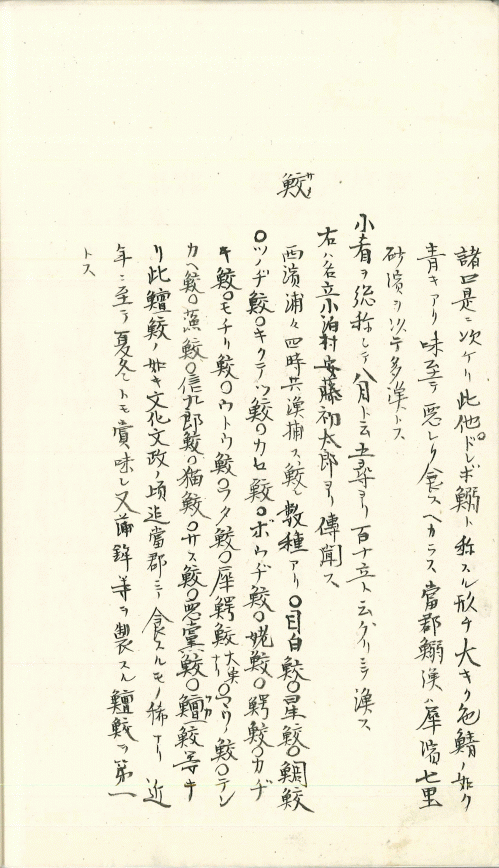 諸口是ニ次ケリ此他ドレボ鰯ト称スル形チ大キク色鯖ノ如ク
青キアリ味至テ悪シク食スヘカラス當郡鰯漁ハ犀濱七里
砂濱ヲ以テ多漁トス
小者ヲ総称シテ八月ト云五尋ヨリ百十立ト云グリニテ漁ス
右ハ名立小泊村安藤初太郎ヨリ傳聞ス
鮫
西濱浦々四時共漁捕ス鮫ニ数種アリ〇目白鮫〇星鮫〇鯛鮫
〇ツノヂ鮫〇キクテツ鮫〇カセ鮫〇ボウヂ鮫〇姥鮫〇鰐鮫〇カヂ
キ鮫〇モチリ鮫〇ウトウ鮫〇ラタ鮫〇犀鰐鮫大東ナリ〇マワノ鮫〇テン
カヘ鮫〇蕪鮫〇信九郎鮫〇猫鮫〇サス鮫〇悪黨鮫〇鱣鮫等キ
リ此鱣鮫ノ如キ文化文政ノ頃迄當郡ニテ食スルモノ稀ナリ近
年ニ至テ夏冬トモ賞味シ又蒲鉾等ヲ製スル鱣鮫ヲ第一
トス